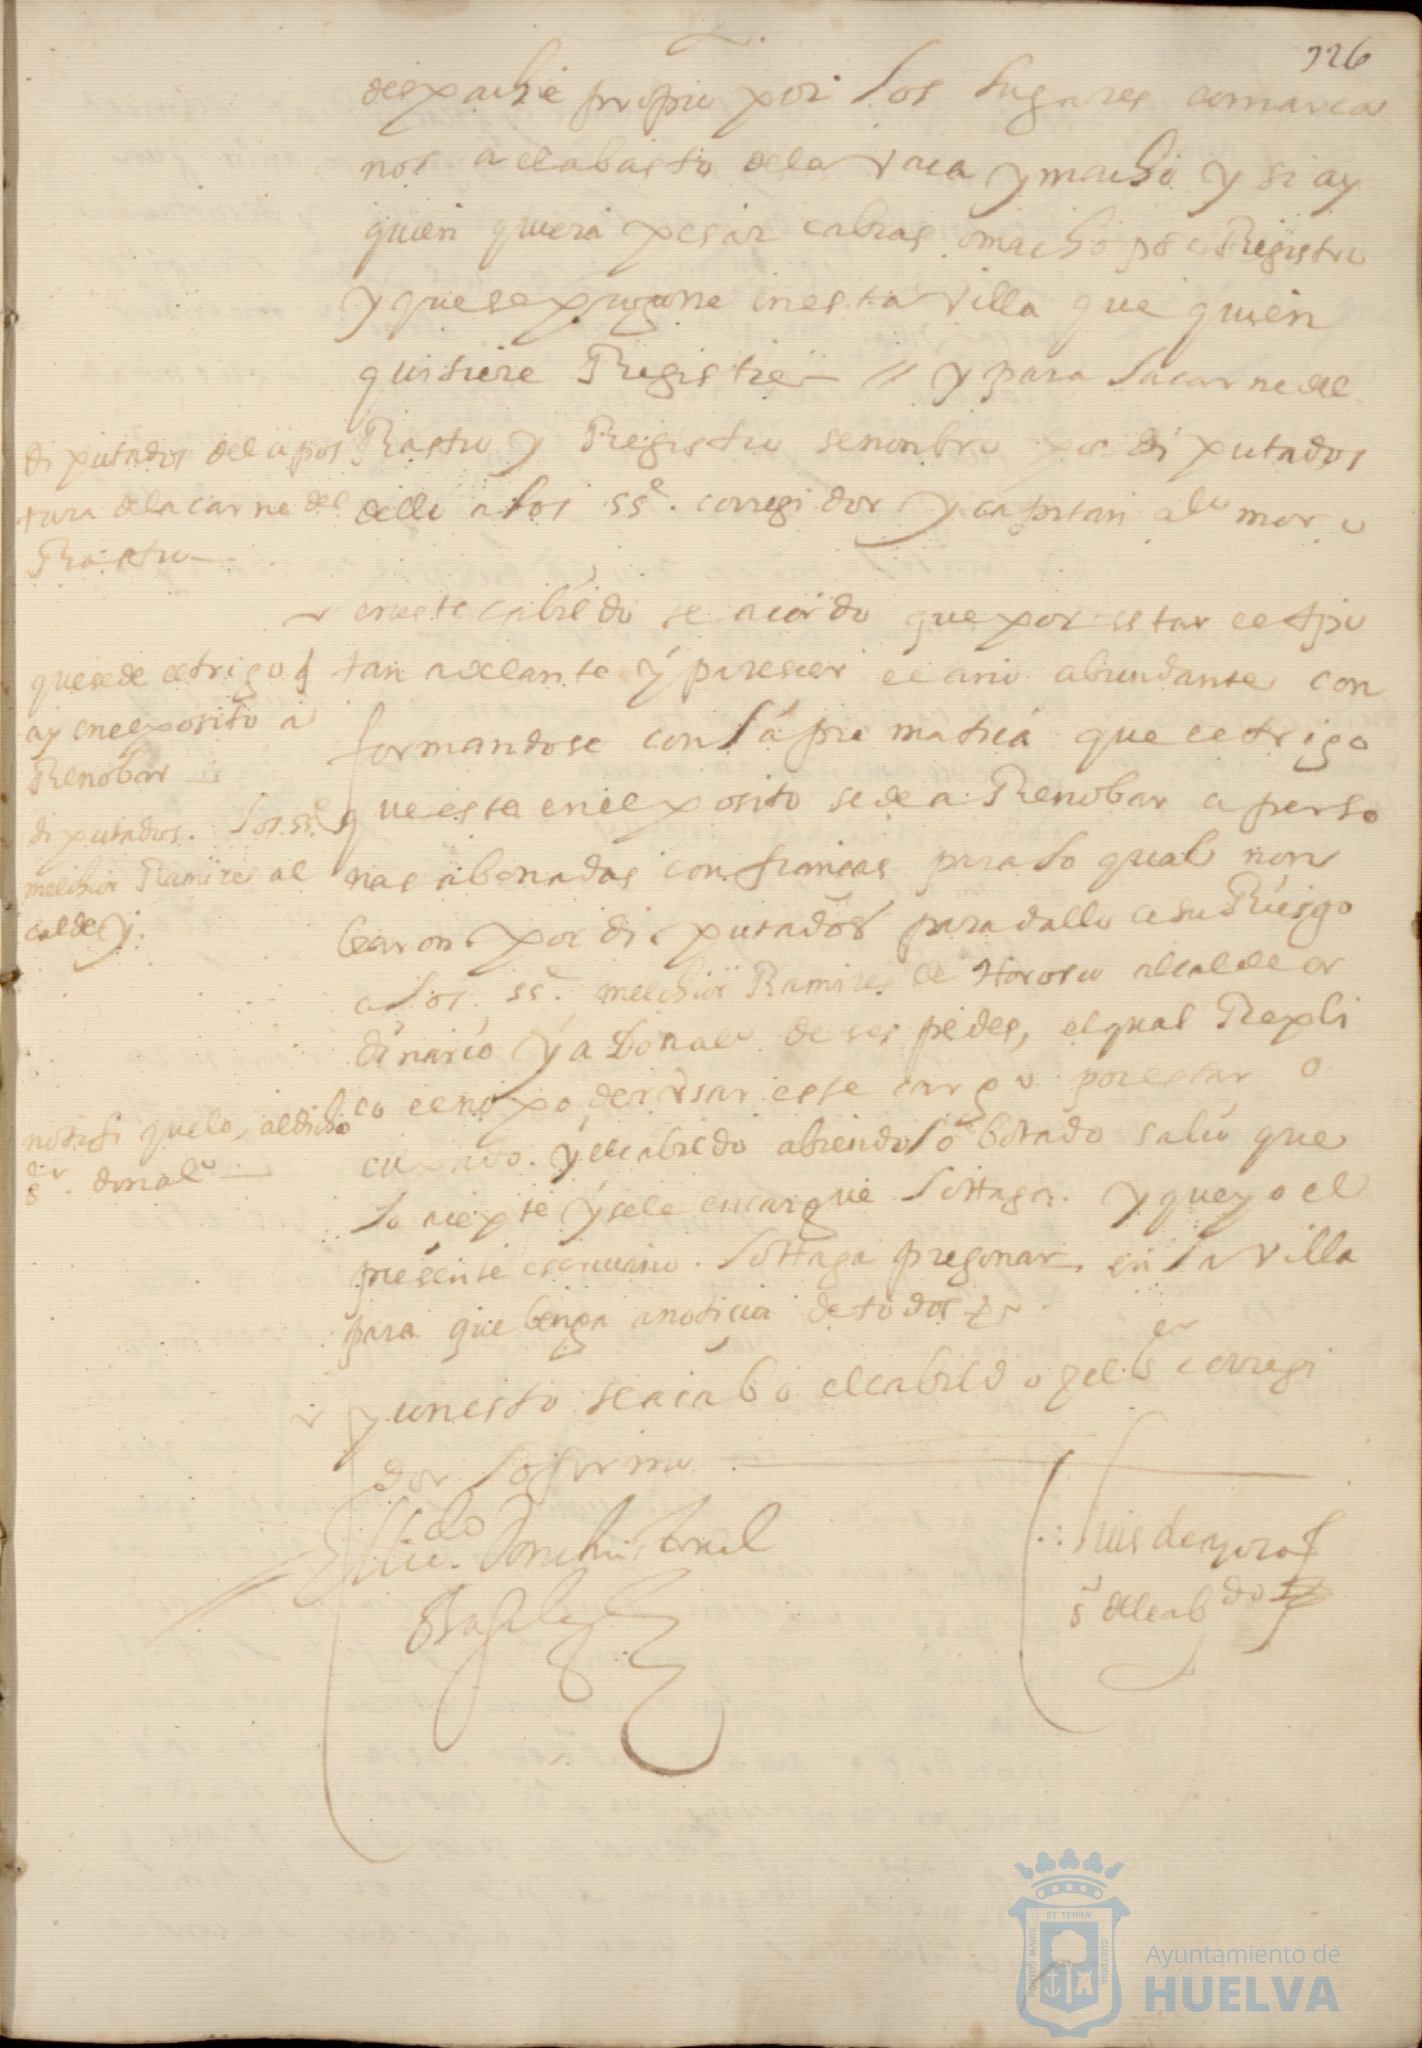 726
despache propio por los lugares comarca
nos a el abasto de la vaca y macho y si ay
quien quiera pesar cabras o macho por Registro
y que se pregone en esta villa que quien
quisiere Registre — // y para la carne del
Rastro y Registro se nonbro por di putados
dello a los ss.e corregidor y capitan al.o moro
diputados del apos
tura de la carne del
Rastro —
en este cabildo se acordo que por estar el tpo
tan adelante y pareser el año abundante con
formandose con la prematica que el trigo
que esta en el posito se de a Renobar a perso
nas abonadas con fianças para lo qual non
braron por di putados para dallo a su Riesgo
a los ss.e melchior Ramires de Horosco alcalde or
dinario y a Don al.o de ses pedes, el qual Repli
co el no po der usar este cargo por estar o
cupado. y el cabildo abiendolo botado salio que
lo acepte y se le encargue lo Haga. y que yo el
presente escriuano. lo Haga pregonar en la villa
para que benga a noticia de todos
que se de el trigo q
ay en el posito a
Renobar —
diputados. los ss.e
melchior Ramires al
calde y.
notifi quelo, al dicho
s.er don al.o —
y con esto se acabo el cabildo y el s.er corregi
dor lo firmo
El lic.do Don
Luis de
s.o del cab.do
ET TERRÆ
PORTUS MARIS
CUSTODIA
Ayuntamiento de
HUELVA